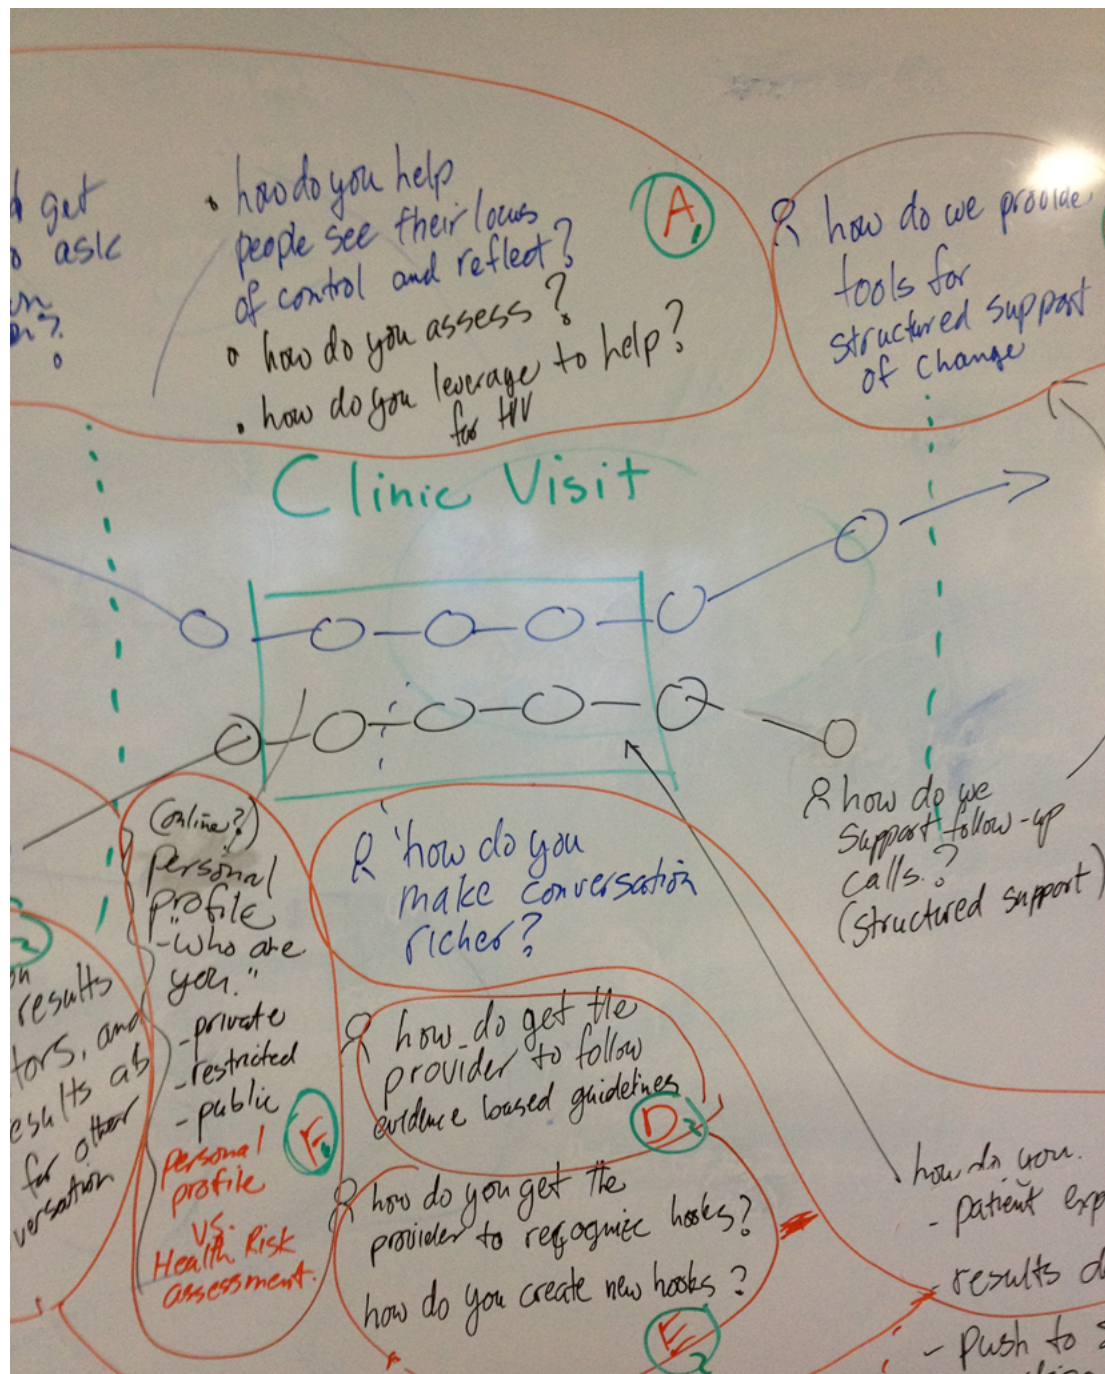 get
ask
• how do you help
people see their locus
of control and reflect?
• how do you assess?
• how do you leverage to help?
for HIV
A1
how do we provide
tools for
structured support
of change
Clinic Visit
how do we
support follow-up
calls?
(structured support)
(online?)
personal
profile
- "who are
you."
- private
- restricted
- public
personal
profile
vs.
Health Risk
assessment.
F
how do you
make conversation
richer?
how do get the
provider to follow
evidence based guidelines
D2
how do you get the
provider to recognize hooks?
how do you create new hooks?
E2
results
tors, and
esults as
for other
versation
how do you.
- patient exp
- results d
- push to